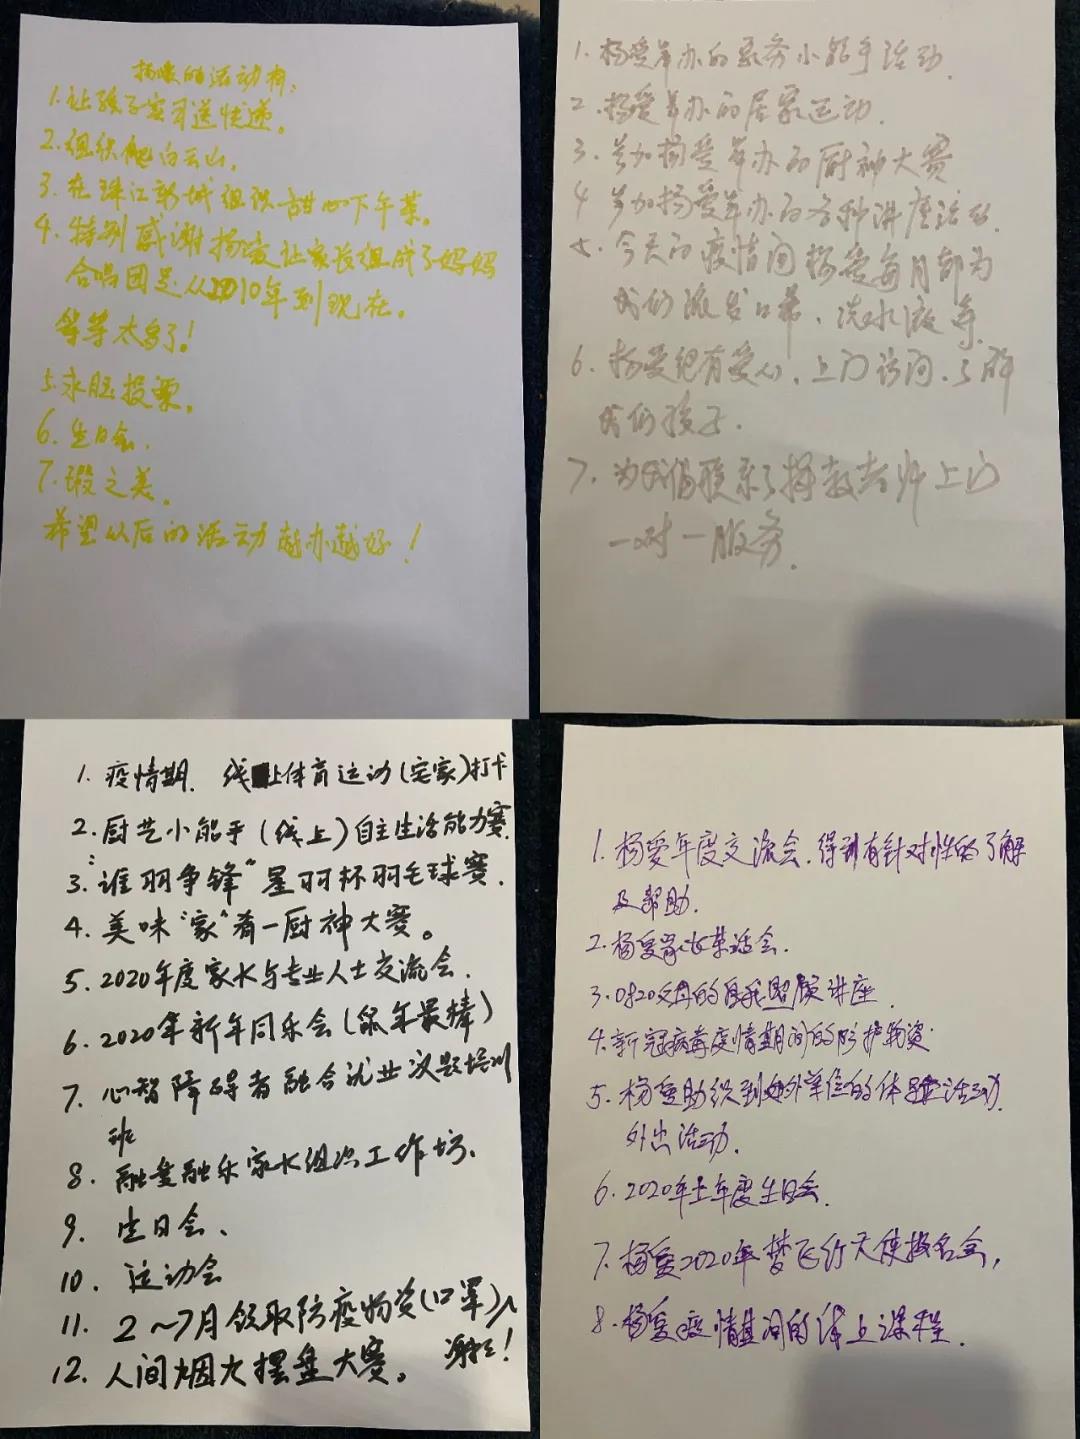 扬爱的活动有:
1.让孩子实习送快递。
2.组织爬白云山。
3.在珠江新城组织甜心下午茶。
4.特别感谢扬爱让家长组成了妈妈
合唱团是从2010年到现在。
等等太多了!
5.永旺投票。
6.生日会.
7.瑕之美。
希望以后的活动越办越好!
1.扬爱举办的家务小能手活动.
2.扬爱举办的居家运动.
3.参加扬爱举办的厨神大赛
4 参加扬爱举办的各种讲座活动.
5.今天的疫情间扬爱每月都为
我们派发口罩、洗水液等.
6.扬爱很有爱心.上门访问.了解
我们孩子.
7.为我们联系了特教老师上门
一对一服务.
1. 疫情期.线上体育运动(宅家)打卡
2.厨艺小能手(线上)自主生活能力赛.
3."谁羽争锋"星羽杯羽毛球赛.
4.美味"家"肴一厨神大赛。
5.2020年度家长与专业人士交流会.
6.2020年新年同乐会(鼠年最棒)
7.心智障碍者融合就业议题培训
班
8.融爱融乐家长组织工作坊.
9.生日会、
10.运动会
11.2~7月领取防疫物资(口罩)、
谢谢!
12.人间烟火摆盘大赛。
1.扬爱年度交流会.得到有针对性的了解
及帮助.
2.扬爱家长茶话会.
3.0820父母的自我照顾讲座.
4.新冠病毒疫情期间的防护物资
5.扬爱助组到外单位的体验活动.
外出活动.
6.2020年上年度生日会.
7.扬爱2020年梦飞行天使报名会,
8.扬爱疫情其间的线上课程.